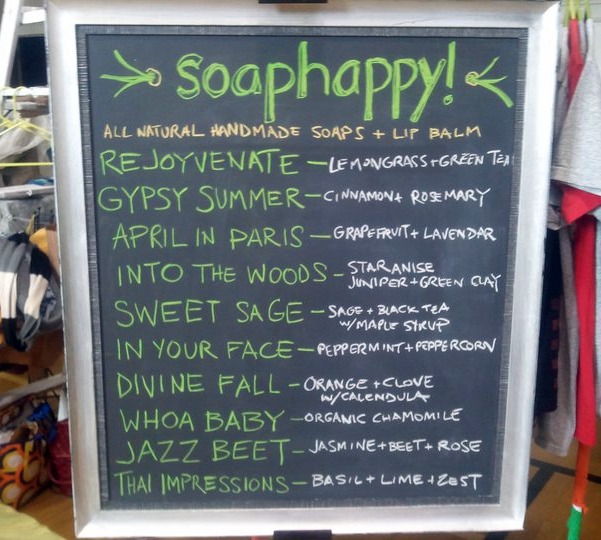 soaphappy!
ALL NATURAL HANDMADE SOAPS + LIP BALM
REJOYVENATE — LEMONGRASS + GREEN TEA
GYPSY SUMMER — CINNAMON + ROSEMARY
APRIL IN PARIS — GRAPEFRUIT + LAVENDAR
INTO THE WOODS - STAR ANISE
JUNIPER + GREEN CLAY
SWEET SAGE — SAGE + BLACK TEA
W/MAPLE SYRUP
IN YOUR FACE — PEPPERMINT + PEPPERCORN
DIVINE FALL — ORANGE + CLOVE
W/CALENDULA
WHOA BABY — ORGANIC CHAMOMILE
JAZZ BEET — JASMINE + BEET + ROSE
THAI IMPRESSIONS — BASIL + LIME + ZEST